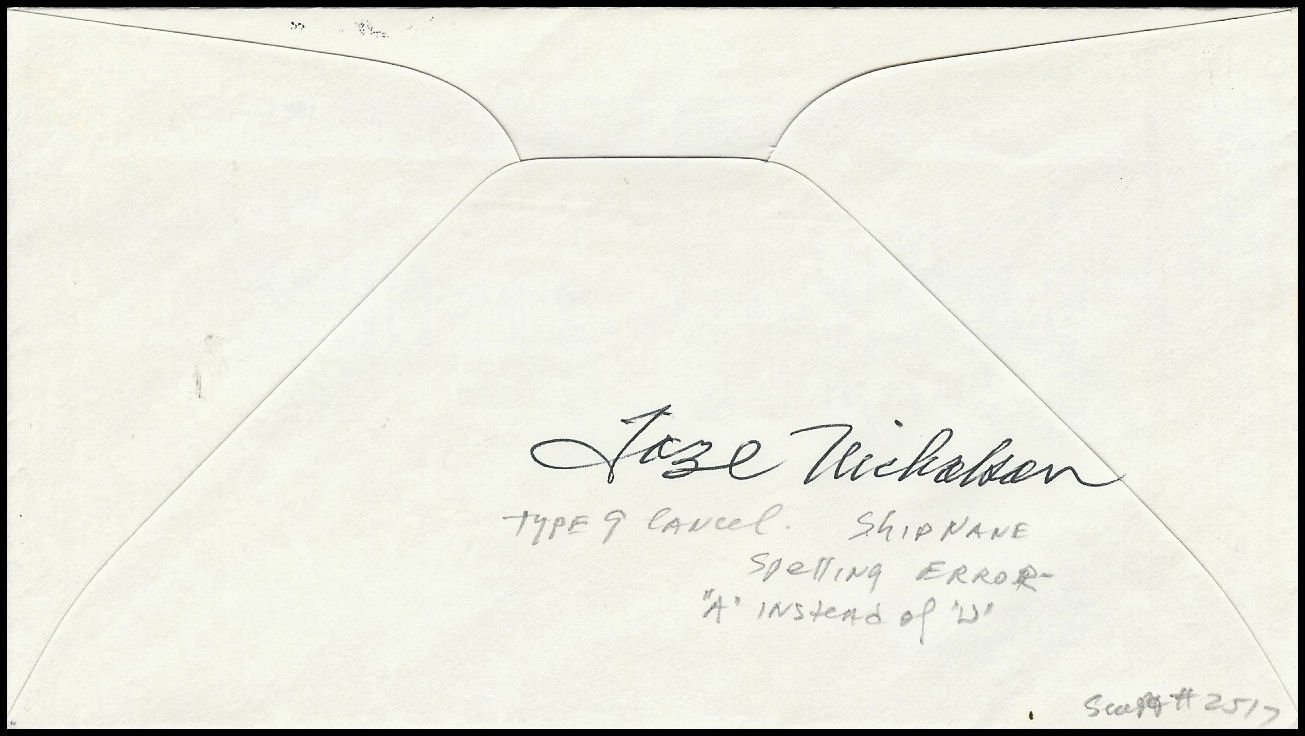 Faze Nicholson
TYPE 9 CANCEL. SHIPNANE
SPELLING ERROR-
"A" INSTEAD of "U"
Scott # 2517